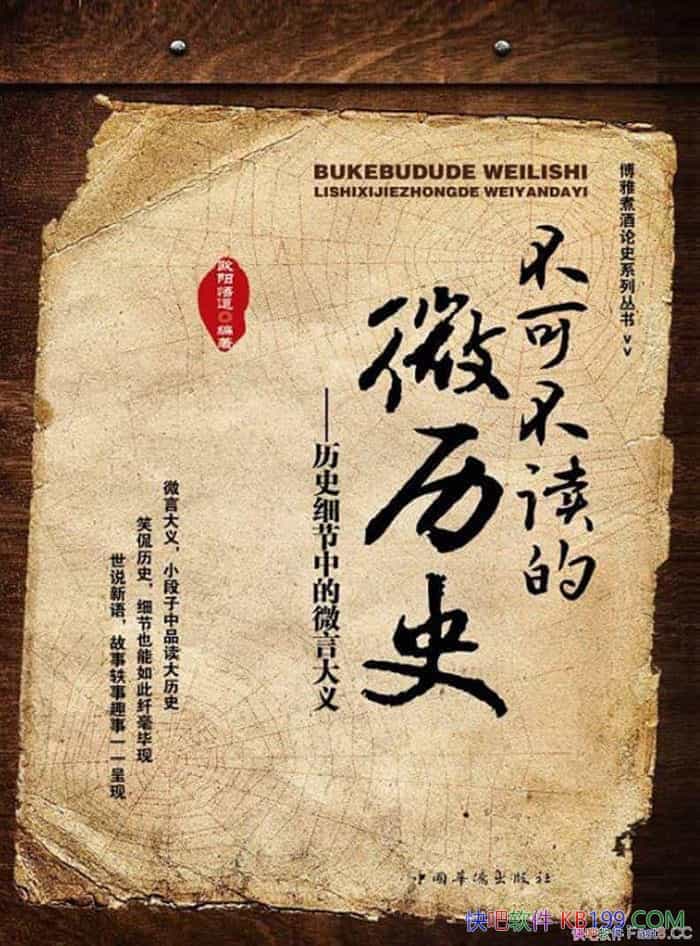 BUKEBUDUDE WEILISHI
LISHIXIJIEZHONGDE WEIYANDAYI
博雅煮酒论史系列丛书
不可不读的
微历史
——历史细节中的微言大义
欧阳悟道◎编著
微言大义，小段子中品读大历史
笑侃历史，细节也能如此纤毫毕现
世说新语，故事轶事趣事一一呈现
中国华侨出版社
快吧软件 KB199.COM
快吧软件 Fast8.CC